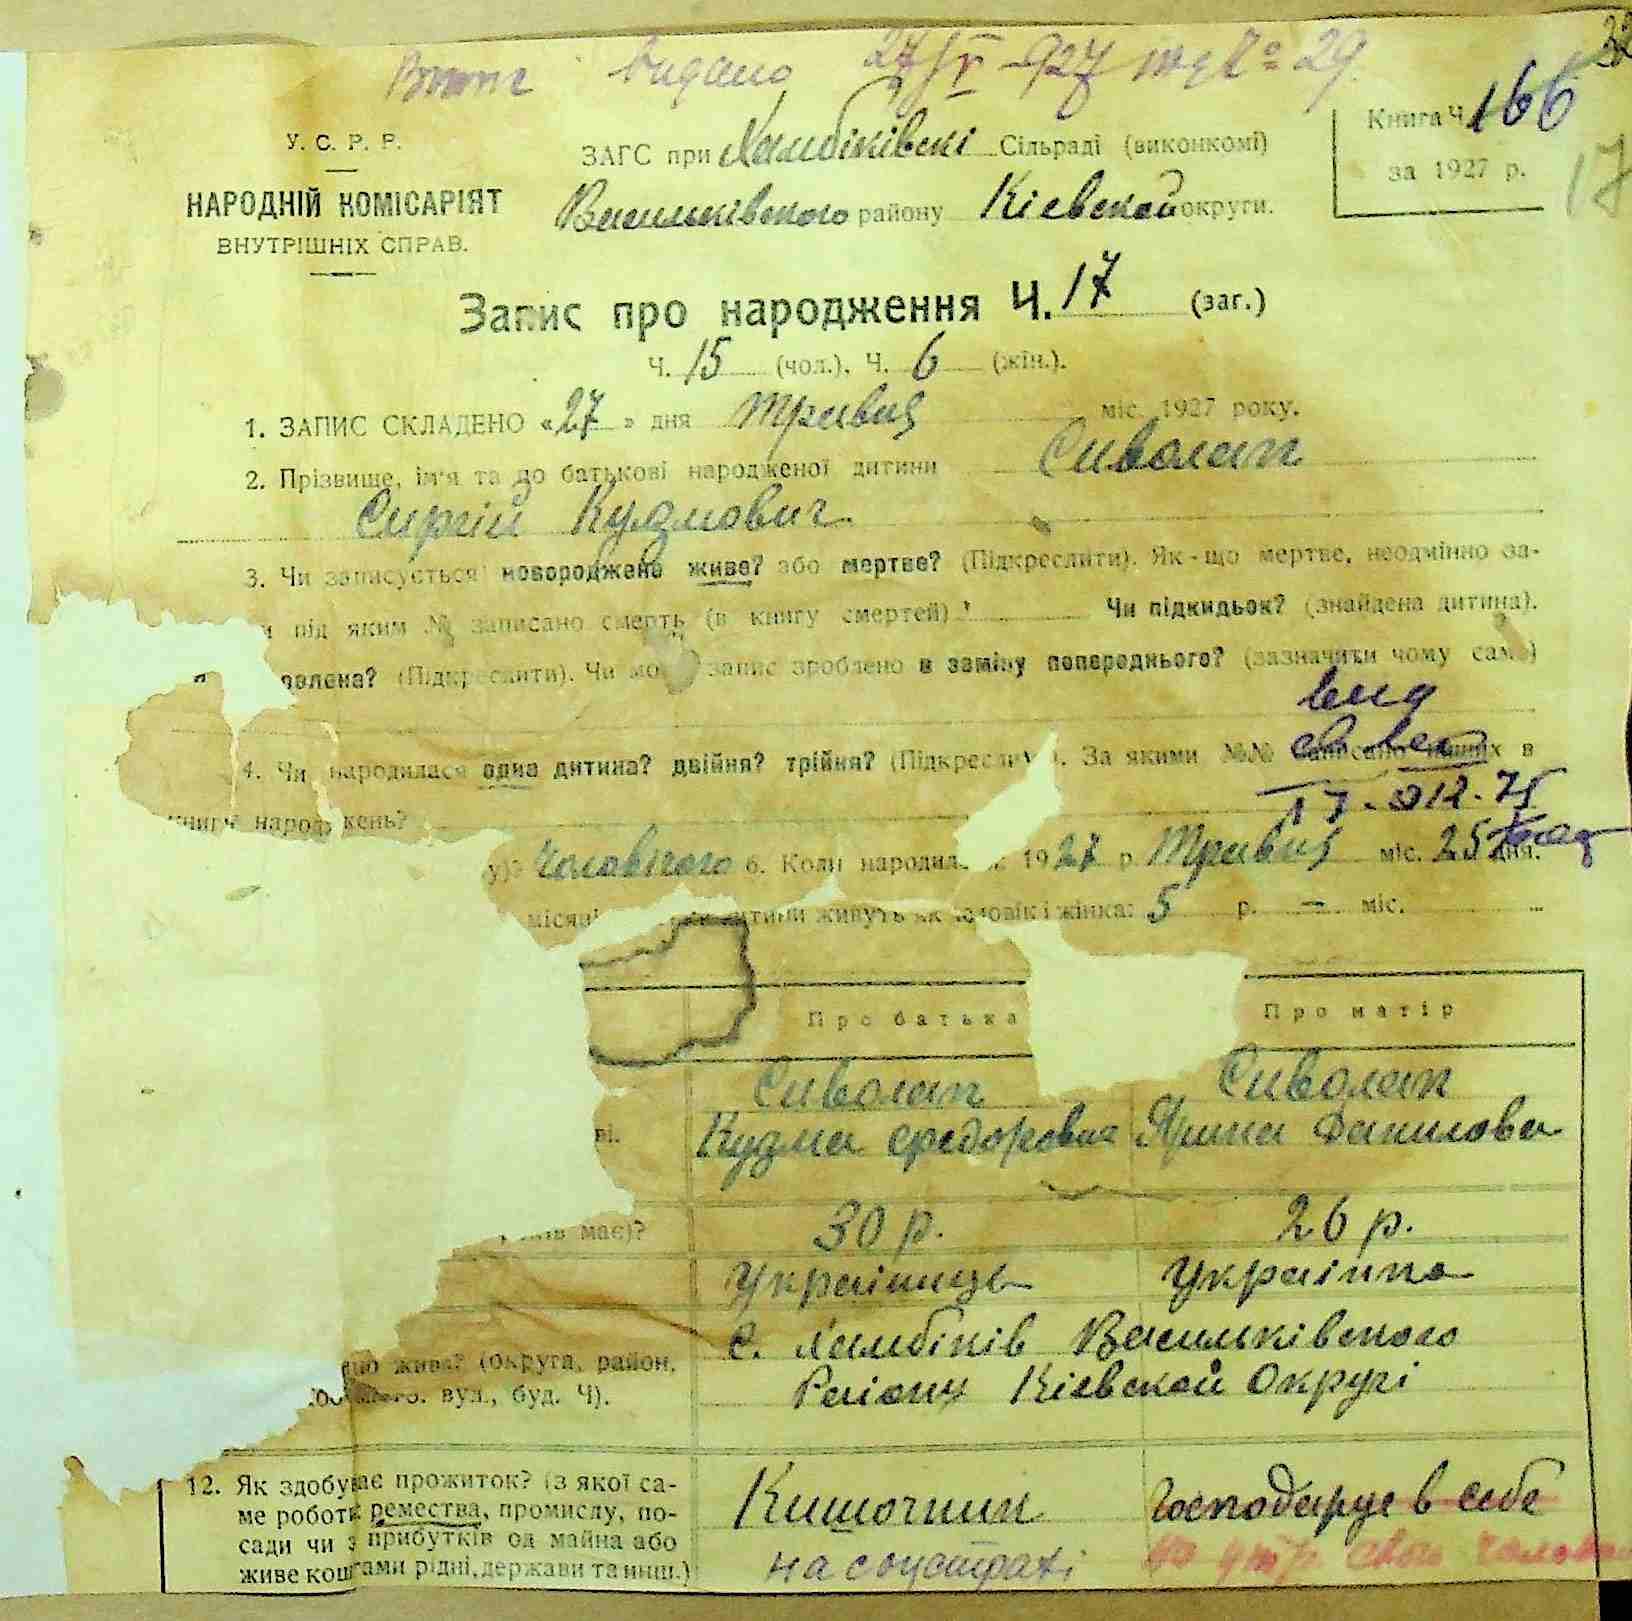 видано 27/V-927 № 29
У. С. Р. Р.
НАРОДНІЙ КОМІСАРІЯТ
ВНУТРІШНІХ СПРАВ.
ЗАГС при Хамбіківскі Сільраді (виконкомі)
Васильківського району Кіевской округи.
Книга Ч. 166
за 1927 р.
17
Запис про народження Ч. 17 (заг.)
Ч. 15 (чол.), Ч. 6 (жін.).
1. ЗАПИС СКЛАДЕНО «27» дня Травня міс. 1927 року.
2. Прізвище, ім'я та по батькові народженої дитини Сиволап
Сиргій Кузмович
3. Чи записується новороджене живе? або мертве? (Підкреслити). Як-що мертве, неодмінно за-
и під яким № записано смерть (в книгу смертей)? Чи підкидьок? (знайдена дитина).
овлена? (Підкреслити). Чи мо запис зроблено в заміну попереднього? (зазначити чому саме)
4. Чи народилася одна дитина? двійня? трійня? (Підкреслити). За якими №№ записано инших в
книгу народжень?
17-XII-75
у)? Чоловічого 6. Коли народил 1927 р Травня міс. 25 дня.
місяці дитини живуть як чоловік і жінка: 5 р. — міс.
Про батька Про матір
Сиволап Сиволап
ві. Кузма Федорович Ярина Данилова
років має)? 30 р. 26 р.
Українець Українка
с. Хамбіків Васильківского
що живе? (округа, район, Району Кіевской Округі
вул., буд. Ч).
12. Як здобуває прожиток? (з якої са-
ме роботи ремества, промислу, по-
сади чи з прибутків од майна або
живе коштами рідні, держави та инш.)
Кишочник Господарує в себе
на соцстрахі